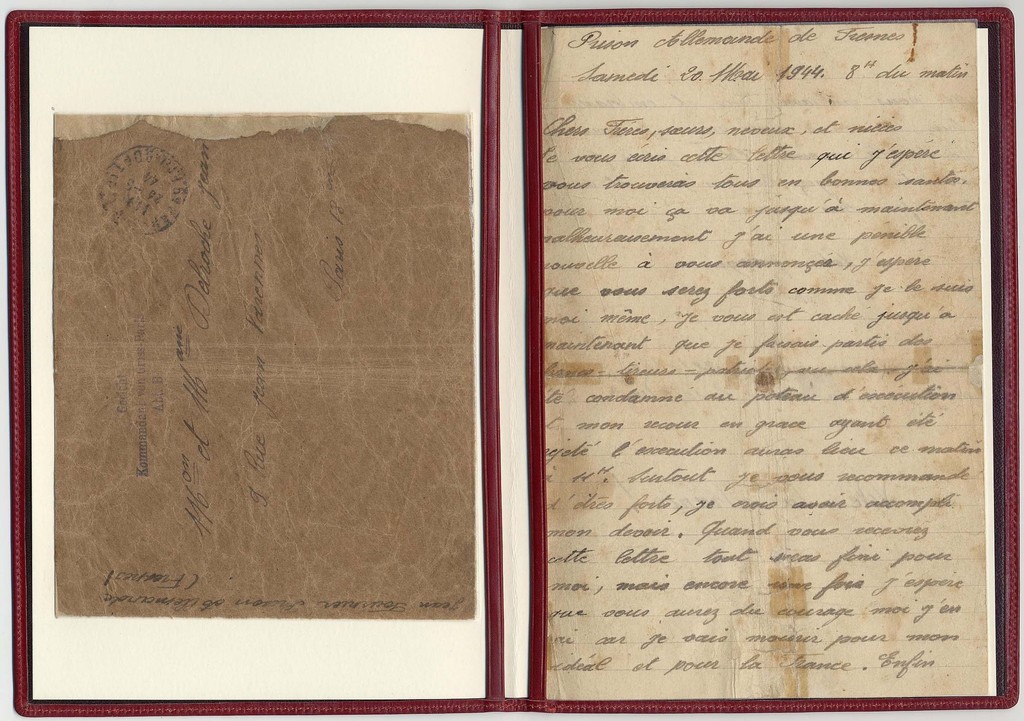 Mon et Mme Delaroche Jean
3 Rue Jean Varenne
Paris 18me
Kommandant von Gross-Paris
Abt. B
Jean Prison allemande
(Fresnes)
Prison Allemande de Fresnes
Samedi 20 Mai 1944. 8H du matin
Chers Frères, sœurs, neveux, et nièces
Je vous écris cette lettre qui j'espéré
vous trouverais tous en bonnes santés.
pour moi ça va jusqu'à maintenant
malheureusement j'ai une penible
nouvelle à vous annonçée, j'espere
que vous serez forts comme je le suis
moi même, je vous est caché jusqu'a
maintenant que je faisais partis des
francs-tireurs-patriot, j'ai
été condamne au poteau d'execution
et mon recour en grace ayant été
rejeté l'execution auras lieu ce matin
à 11H. Surtout je vous recommande
d'êtres forts, je crois avoir accompli
mon devoir. Quand vous recevrez
cette lettre tout seras fini pour
moi, mais encore une fois j'espère
que vous aurez du courage moi j'en
ai car je vais mourir pour mon
idéal et pour la France. Enfin